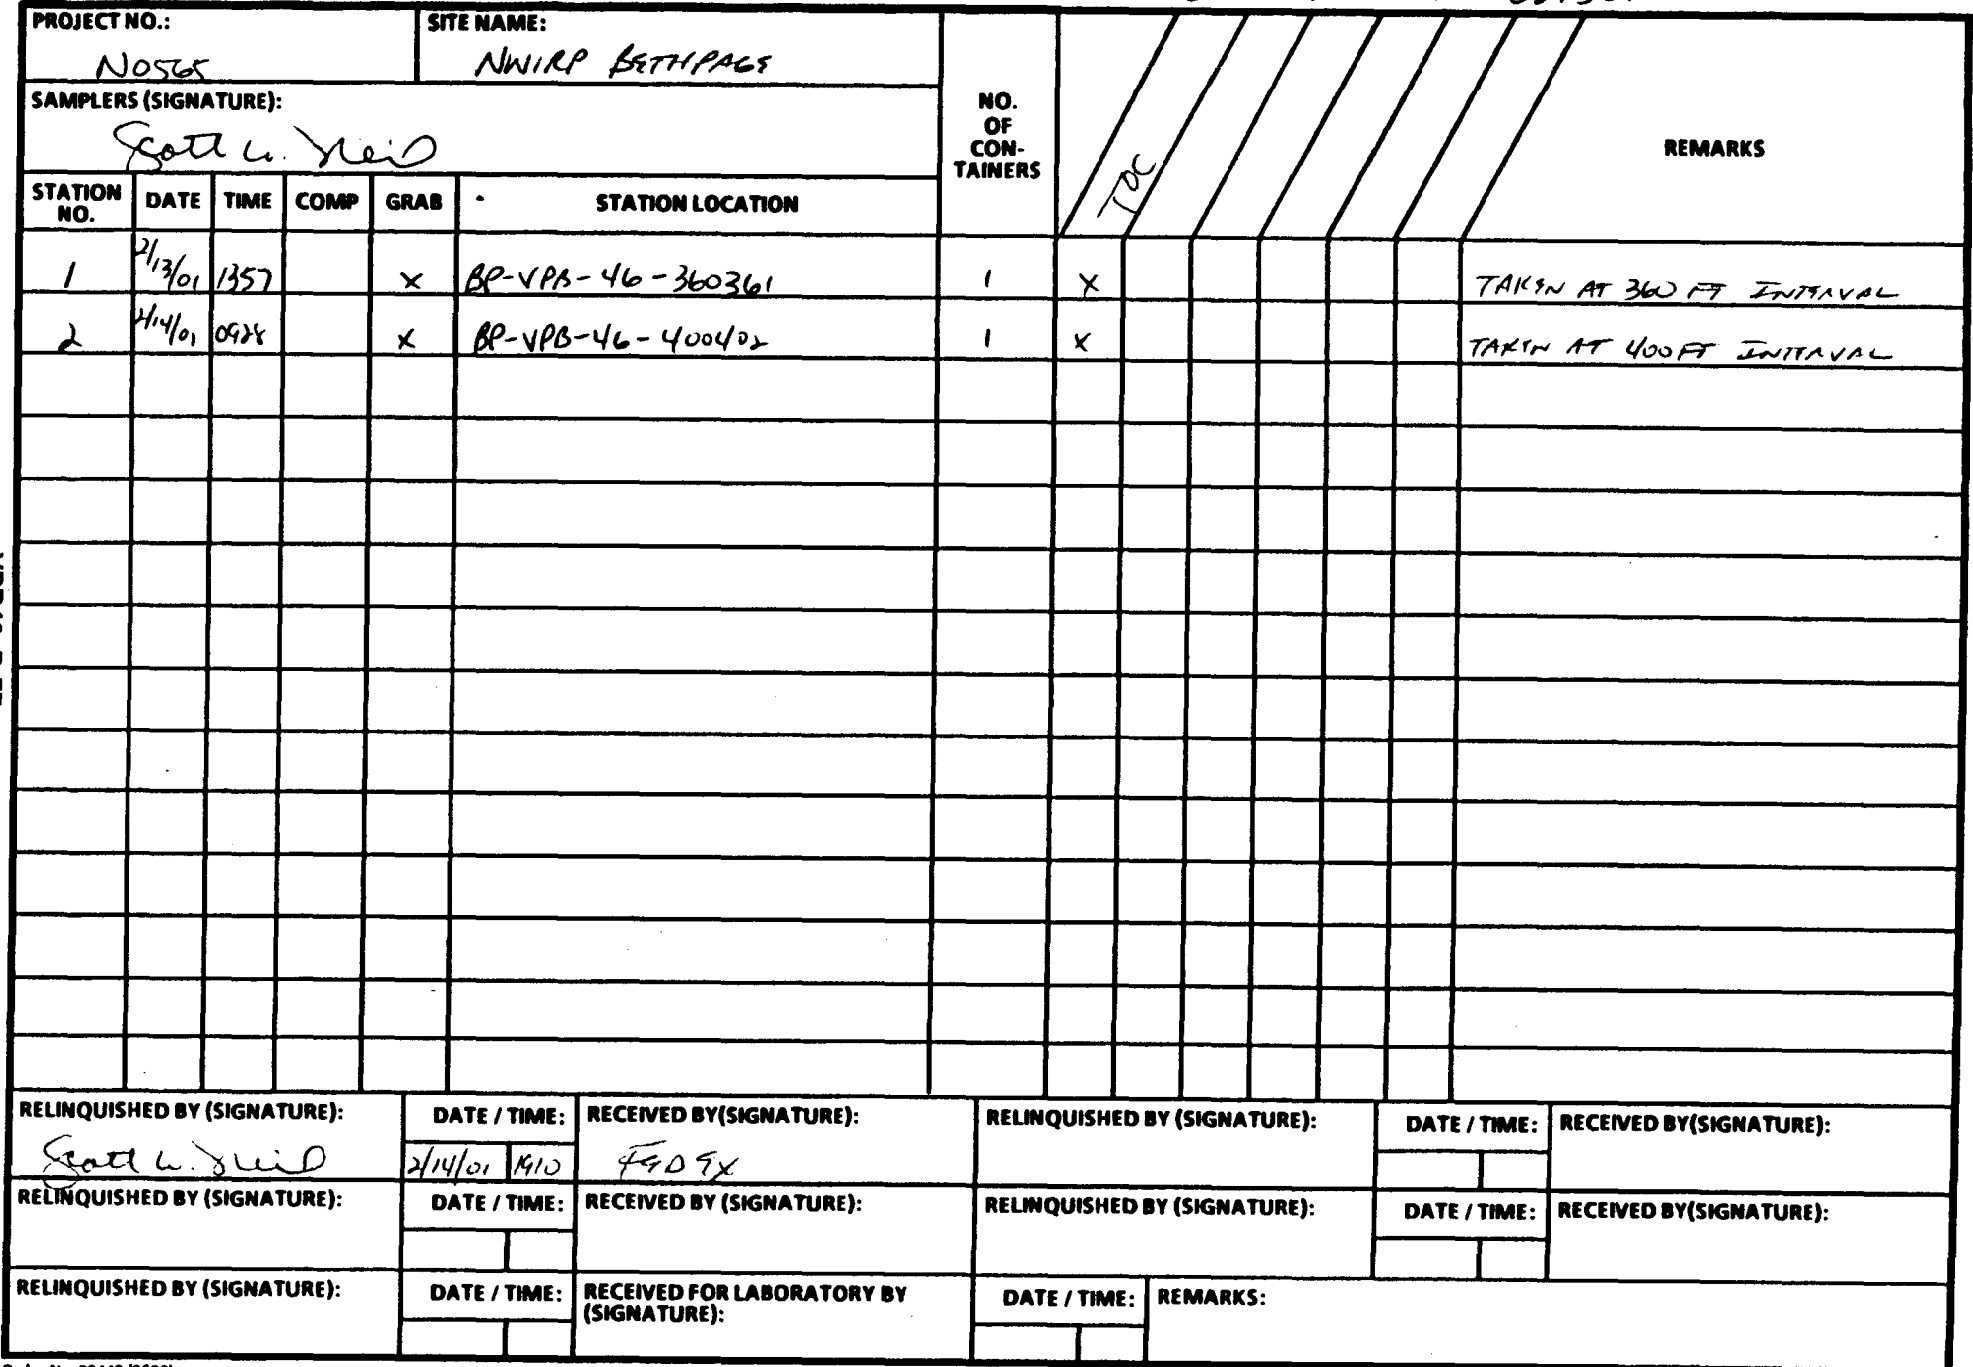 PROJECT NO.: SITE NAME:
N0565 NWIRP BETHPAGE
SAMPLERS (SIGNATURE):
Scott W. Neil
NO.
OF
CON-
TAINERS
TOC
REMARKS
STATION NO. DATE TIME COMP GRAB STATION LOCATION
1 2/13/01 1357 X BP-VPB-46-360361 1 X TAKEN AT 360 FT INTERVAL
2 2/14/01 0928 X BP-VPB-46-400402 1 X TAKEN AT 400 FT INTERVAL
RELINQUISHED BY (SIGNATURE): DATE / TIME: RECEIVED BY(SIGNATURE): RELINQUISHED BY (SIGNATURE): DATE / TIME: RECEIVED BY(SIGNATURE):
Scott W. Neil 2/14/01 1910 FED EX
RELINQUISHED BY (SIGNATURE): DATE / TIME: RECEIVED BY (SIGNATURE): RELINQUISHED BY (SIGNATURE): DATE / TIME: RECEIVED BY(SIGNATURE):
RELINQUISHED BY (SIGNATURE): DATE / TIME: RECEIVED FOR LABORATORY BY (SIGNATURE): DATE / TIME: REMARKS: